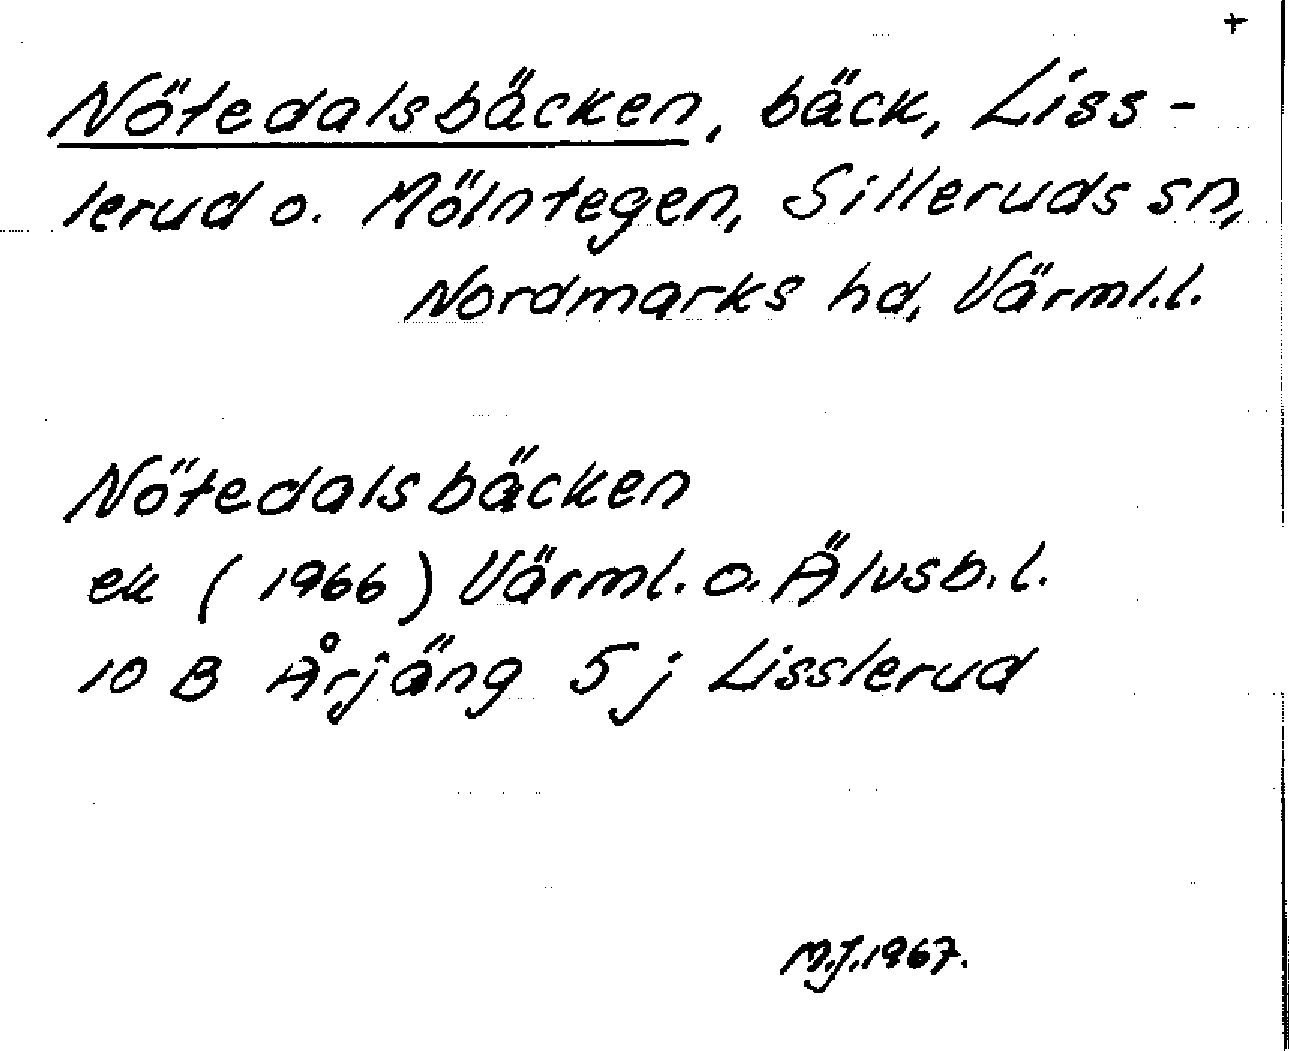 +
Nötedalsbäcken, bäck, Liss-
lerud o. Mölntegen, Silleruds sn,
Nordmarks hd, Värml.l.
Nötedalsbäcken
ek (1966) Värml. o. Älvsb.l.
10 B Årjäng 5 j Lisslerud
M.J.1967.